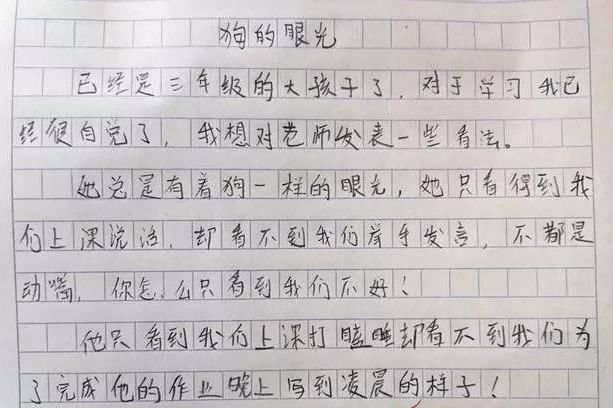 狗的眼光
已经是三年级的大孩子了，对于学习我已
经很自觉了，我想对老师发表一些看法。
她总是有着狗一样的眼光，她只看得到我
们上课说话，却看不到我们举手发言，不都是
动嘴，你怎么只看到我们不好！
他只看到我们上课打瞌睡却看不到我们为
了完成他的作业晚上写到凌晨的样子！